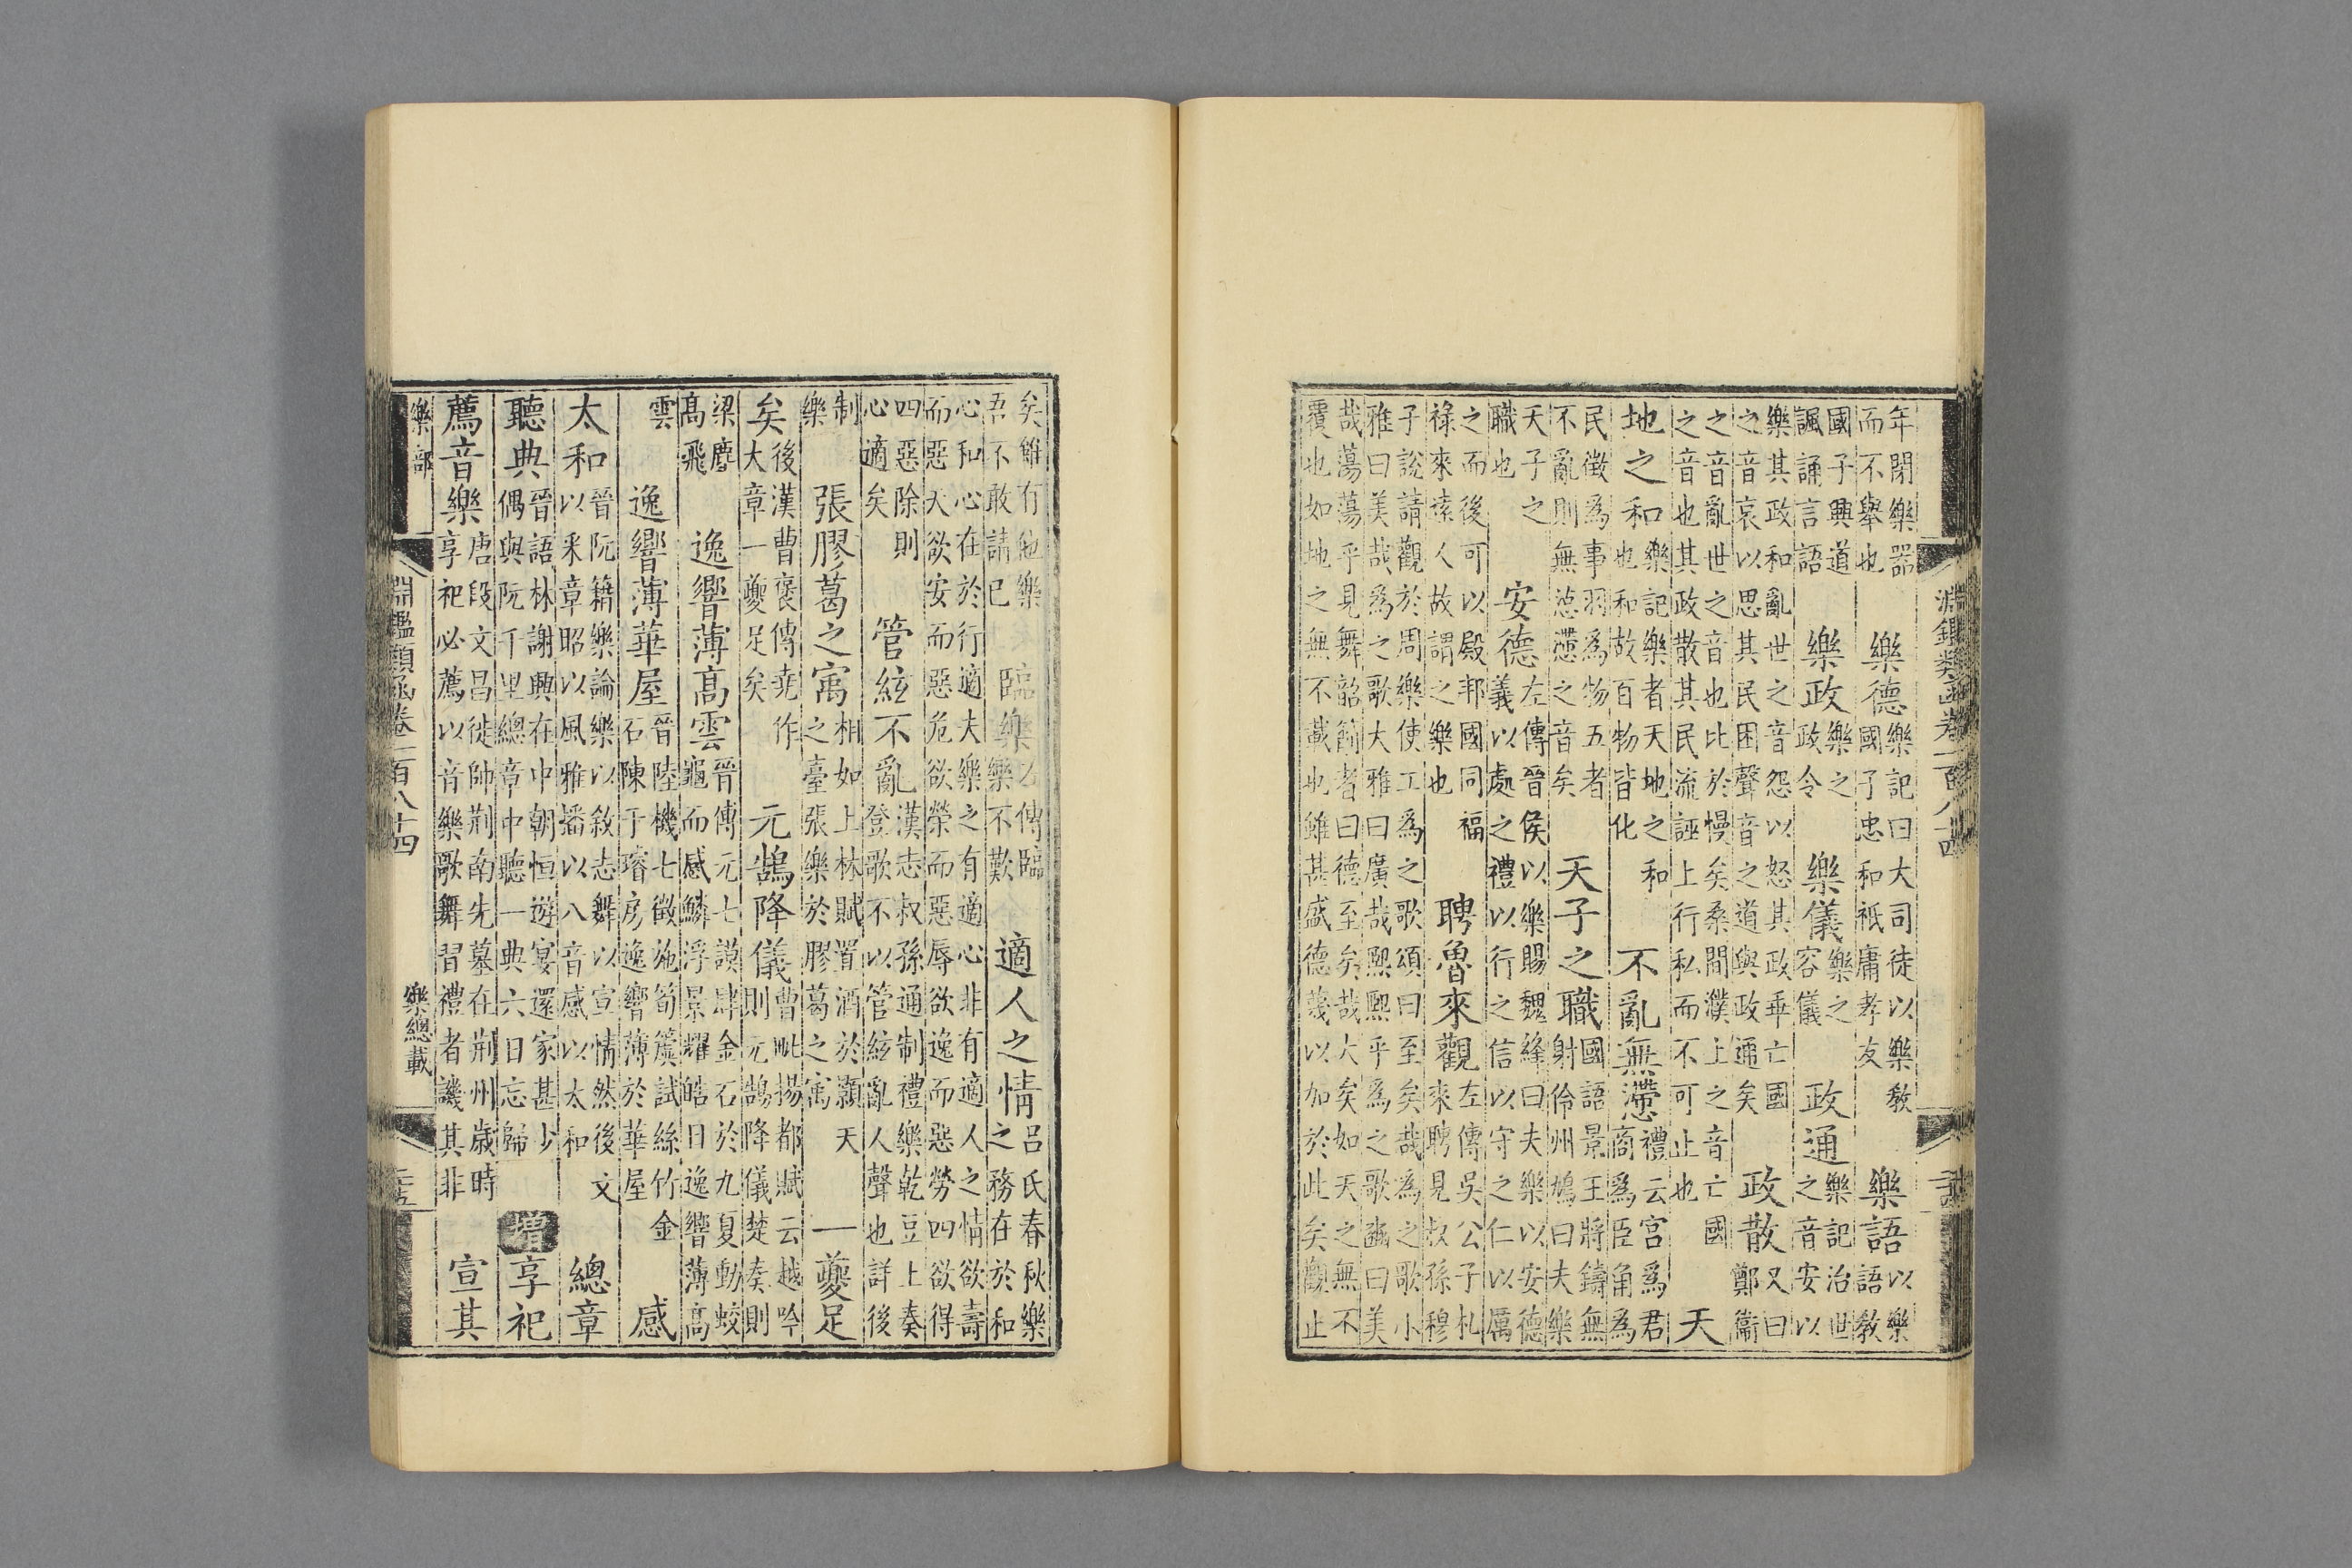 淵鑑類函卷一百八十四
年閉樂器而不舉也 樂德 樂記曰大司徒以樂教國子忠和祗庸孝友 樂語 以樂語教
國子興道諷誦言語 樂政 樂之政令 樂儀 樂之容儀 政通 樂記治世之音安以
樂其政和亂世之音怨以怒其政乖亡國之音哀以思其民困聲音之道與政通矣 政散 又曰鄭衞
之音亂世之音也比於慢矣桑間濮上之音亡國之音也其政散其民流誣上行私而不可止也 天
地之和 樂記樂者天地之和也和故百物皆化 不亂無懘 禮云宮為君商為臣角為
民徵為事羽為物五者不亂則無怗懘之音矣 天子之職 國語景王將鑄無射伶州鳩曰夫樂
天子之職也 安德 左傳晉侯以樂賜魏絳曰夫樂以安德義以處之禮以行之信以守之仁以厲
之而後可以殿邦國同福祿來遠人故謂之樂也 聘魯來觀 左傳吳公子札來聘見叔孫穆
子說請觀於周樂使工為之歌頌曰至矣哉為之歌小雅曰美哉為之歌大雅曰廣哉熙熙乎為之歌豳曰美
哉蕩蕩乎見舞韶箾者曰德至矣哉大矣如天之無不覆也如地之無不載也雖甚盛德蔑以加於此矣觀止
矣雖有他樂吾不敢請已 臨樂 左傳臨樂不歎 適人之情 呂氏春秋樂之務在於和
心和心在於行適夫樂之有適心非有適人之情欲壽而惡夭欲安而惡危欲榮而惡辱欲逸而惡勞四欲得
四惡除則心適矣 管絃不亂 漢志叔孫通制禮樂乾豆上奏登歌不以管絃亂人聲也詳後
制樂 張膠葛之寓 相如上林賦置酒於顥天之臺張樂於膠葛之寓 一夔足
矣 後漢曹褒傳堯作大章一夔足矣 元鵠降儀 曹毗揚都賦云越吟則元鵠降儀楚奏則
梁塵高飛 逸響薄高雲 晉傅元七謨肆金石於九夏動蛟龜而感鱗浮景耀皓日逸響薄高
雲 逸響薄華屋 晉陸機七徵施筍簴試絲竹金石陳于璿房逸響薄於華屋 感
太和 晉阮籍樂論樂以敘志舞以宣情然後文以采章昭以風雅播以八音感以太和 總章
聽典 晉語林謝興在中朝恒遊宴還家甚少偶與阮千里總章中聽一典六日忘歸 增 享祀
薦音樂 唐段文昌徙帥荆南先墓在荆州歲時享祀必薦以音樂歌舞習禮者譏其非 宣其
樂部 樂總載
淵鑑類函卷一百八十四